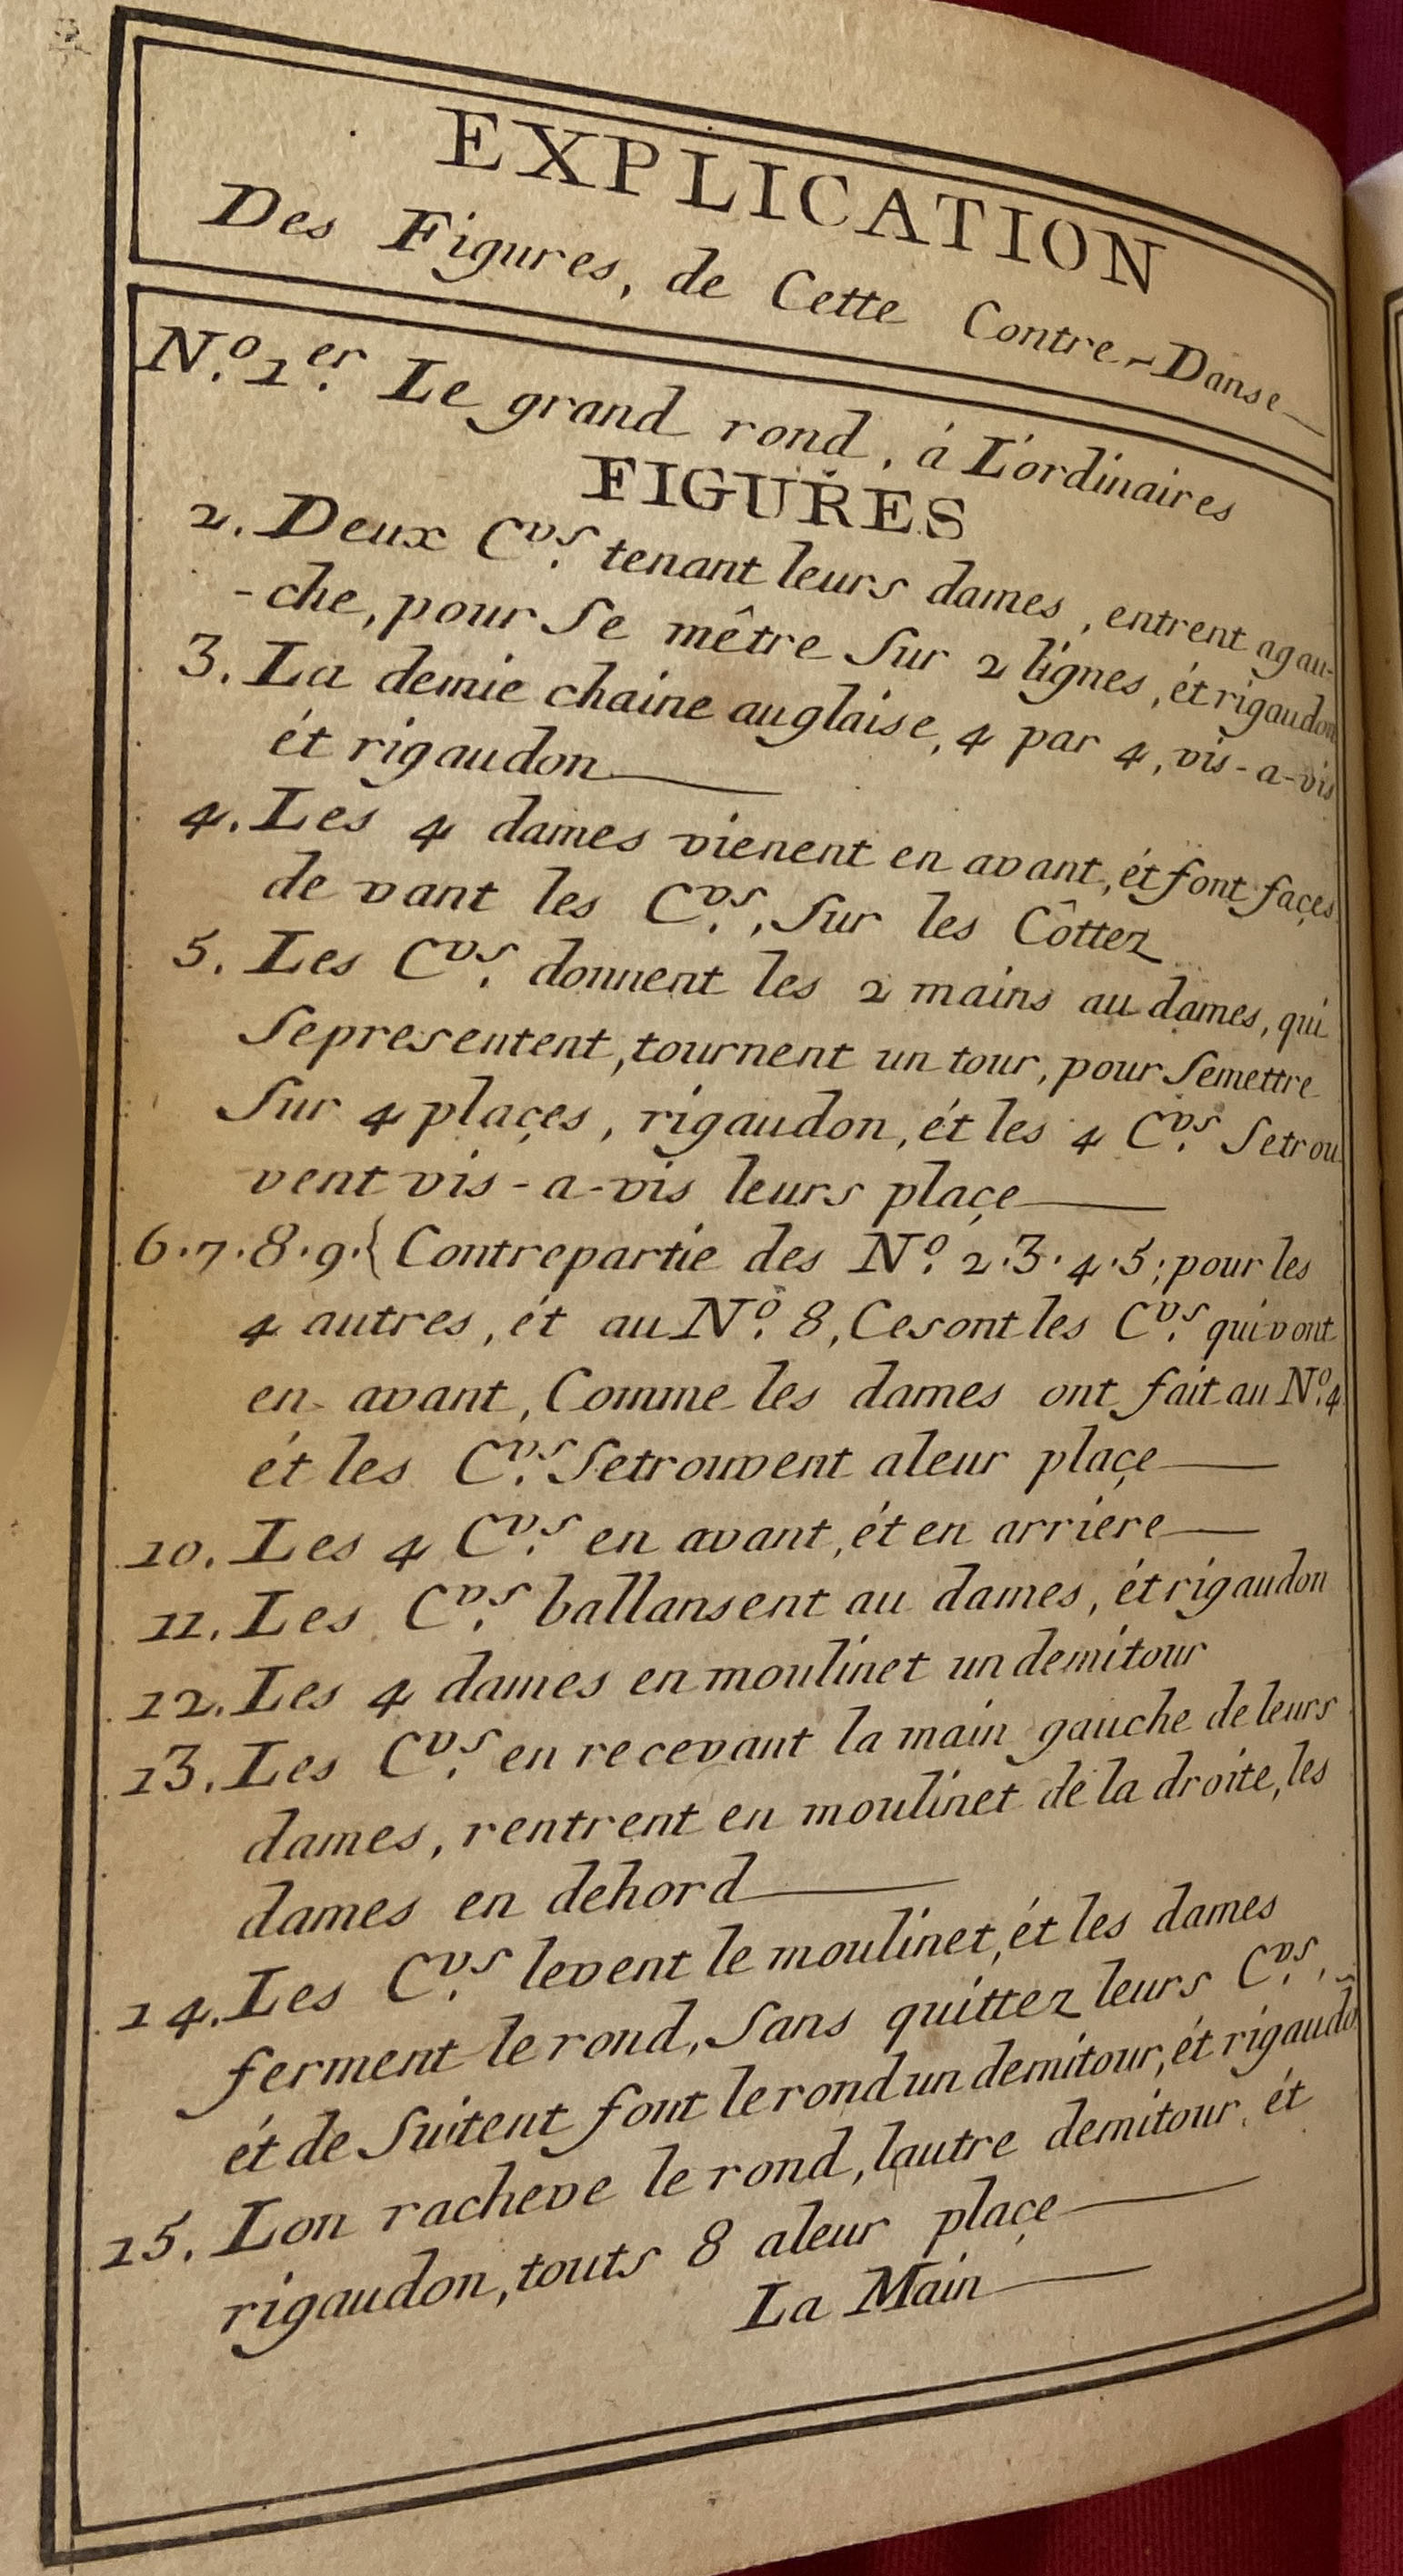 EXPLICATION
Des Figures, de Cette Contre-Danse
N.º 1.er Le grand rond, á L'ordinaires
FIGURES
2. Deux C.vs tenant leurs dames, entrent agau-
-che, pour Se mêtre Sur 2 lignes, ét rigaudon
3. La demie chaine auglaise, 4 par 4, vis-a-vis
ét rigaudon
4. Les 4 dames vienent en avant, ét font façes
de vant les C.vs, Sur les Côttez
5. Les C.vs donnent les 2 mains au dames, qui
Sepresentent, tournent un tour, pour Semettre
Sur 4 plaçes, rigaudon, ét les 4 C.vs Setrou
vent vis-a-vis leurs plaçe
6.7.8.9.{ Contrepartie des N.º 2.3.4.5; pour les
4 autres, ét au N.º 8, Cesont les C.vs qui vont
en avant, Comme les dames ont fait au N.º 4
ét les C.vs Setrouvent aleur plaçe
10. Les 4 C.vs en avant, ét en arriére
11. Les C.vs ballansent au dames, ét rigaudon
12. Les 4 dames en moulinet un demitour
13. Les C.vs en recevant la main gauche de leurs
dames, rentrent en moulinet de la droite, les
dames en dehord
14. Les C.vs levent le moulinet, ét les dames
ferment le rond, Sans quittez leurs C.vs,
ét de Suitent font le rond un demitour, ét rigaudõ
15. Lon racheve le rond, lautre demitour, ét
rigaudon, touts 8 aleur plaçe
La Main